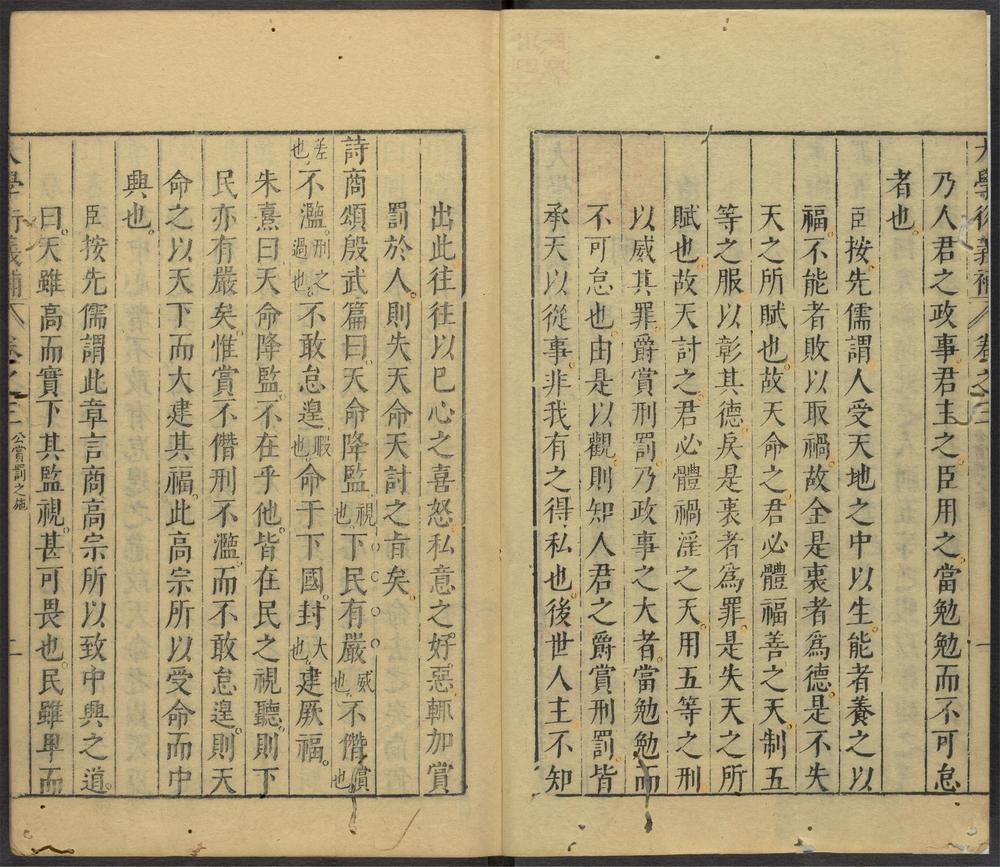 大學衍義補 卷之三
乃人君之政事君主之臣用之當勉勉而不可怠
者也
臣按先儒謂人受天地之中以生能者養之以
福不能者敗以取禍故全是衷者爲德是不失
天之所賦也故天命之君必體福善之天制五
等之服以彰其德戾是衷者爲罪是失天之所
賦也故天討之君必體禍淫之天用五等之刑
以威其罪爵賞刑罰乃政事之大者當勉勉而
不可怠也由是以觀則知人君之爵賞刑罰皆
承天以從事非我有之得私也後世人主不知
出此往往以巳心之喜怒私意之好惡輒加賞
罰於人則失天命天討之旨矣
詩商頌殷武篇曰天命降監視也下民有嚴威也不僭賞之
差也不濫刑之過也不敢怠遑暇也命于下國封大也建厥福
朱熹曰天命降監不在乎他皆在民之視聽則下
民亦有嚴矣惟賞不僭刑不濫而不敢怠遑則天
命之以天下而大建其福此高宗所以受命而中
興也
臣按先儒謂此章言商高宗所以致中興之道
曰天雖高而實下其監視甚可畏也民雖卑而
大學衍義補 卷之三 公賞罰之施 二